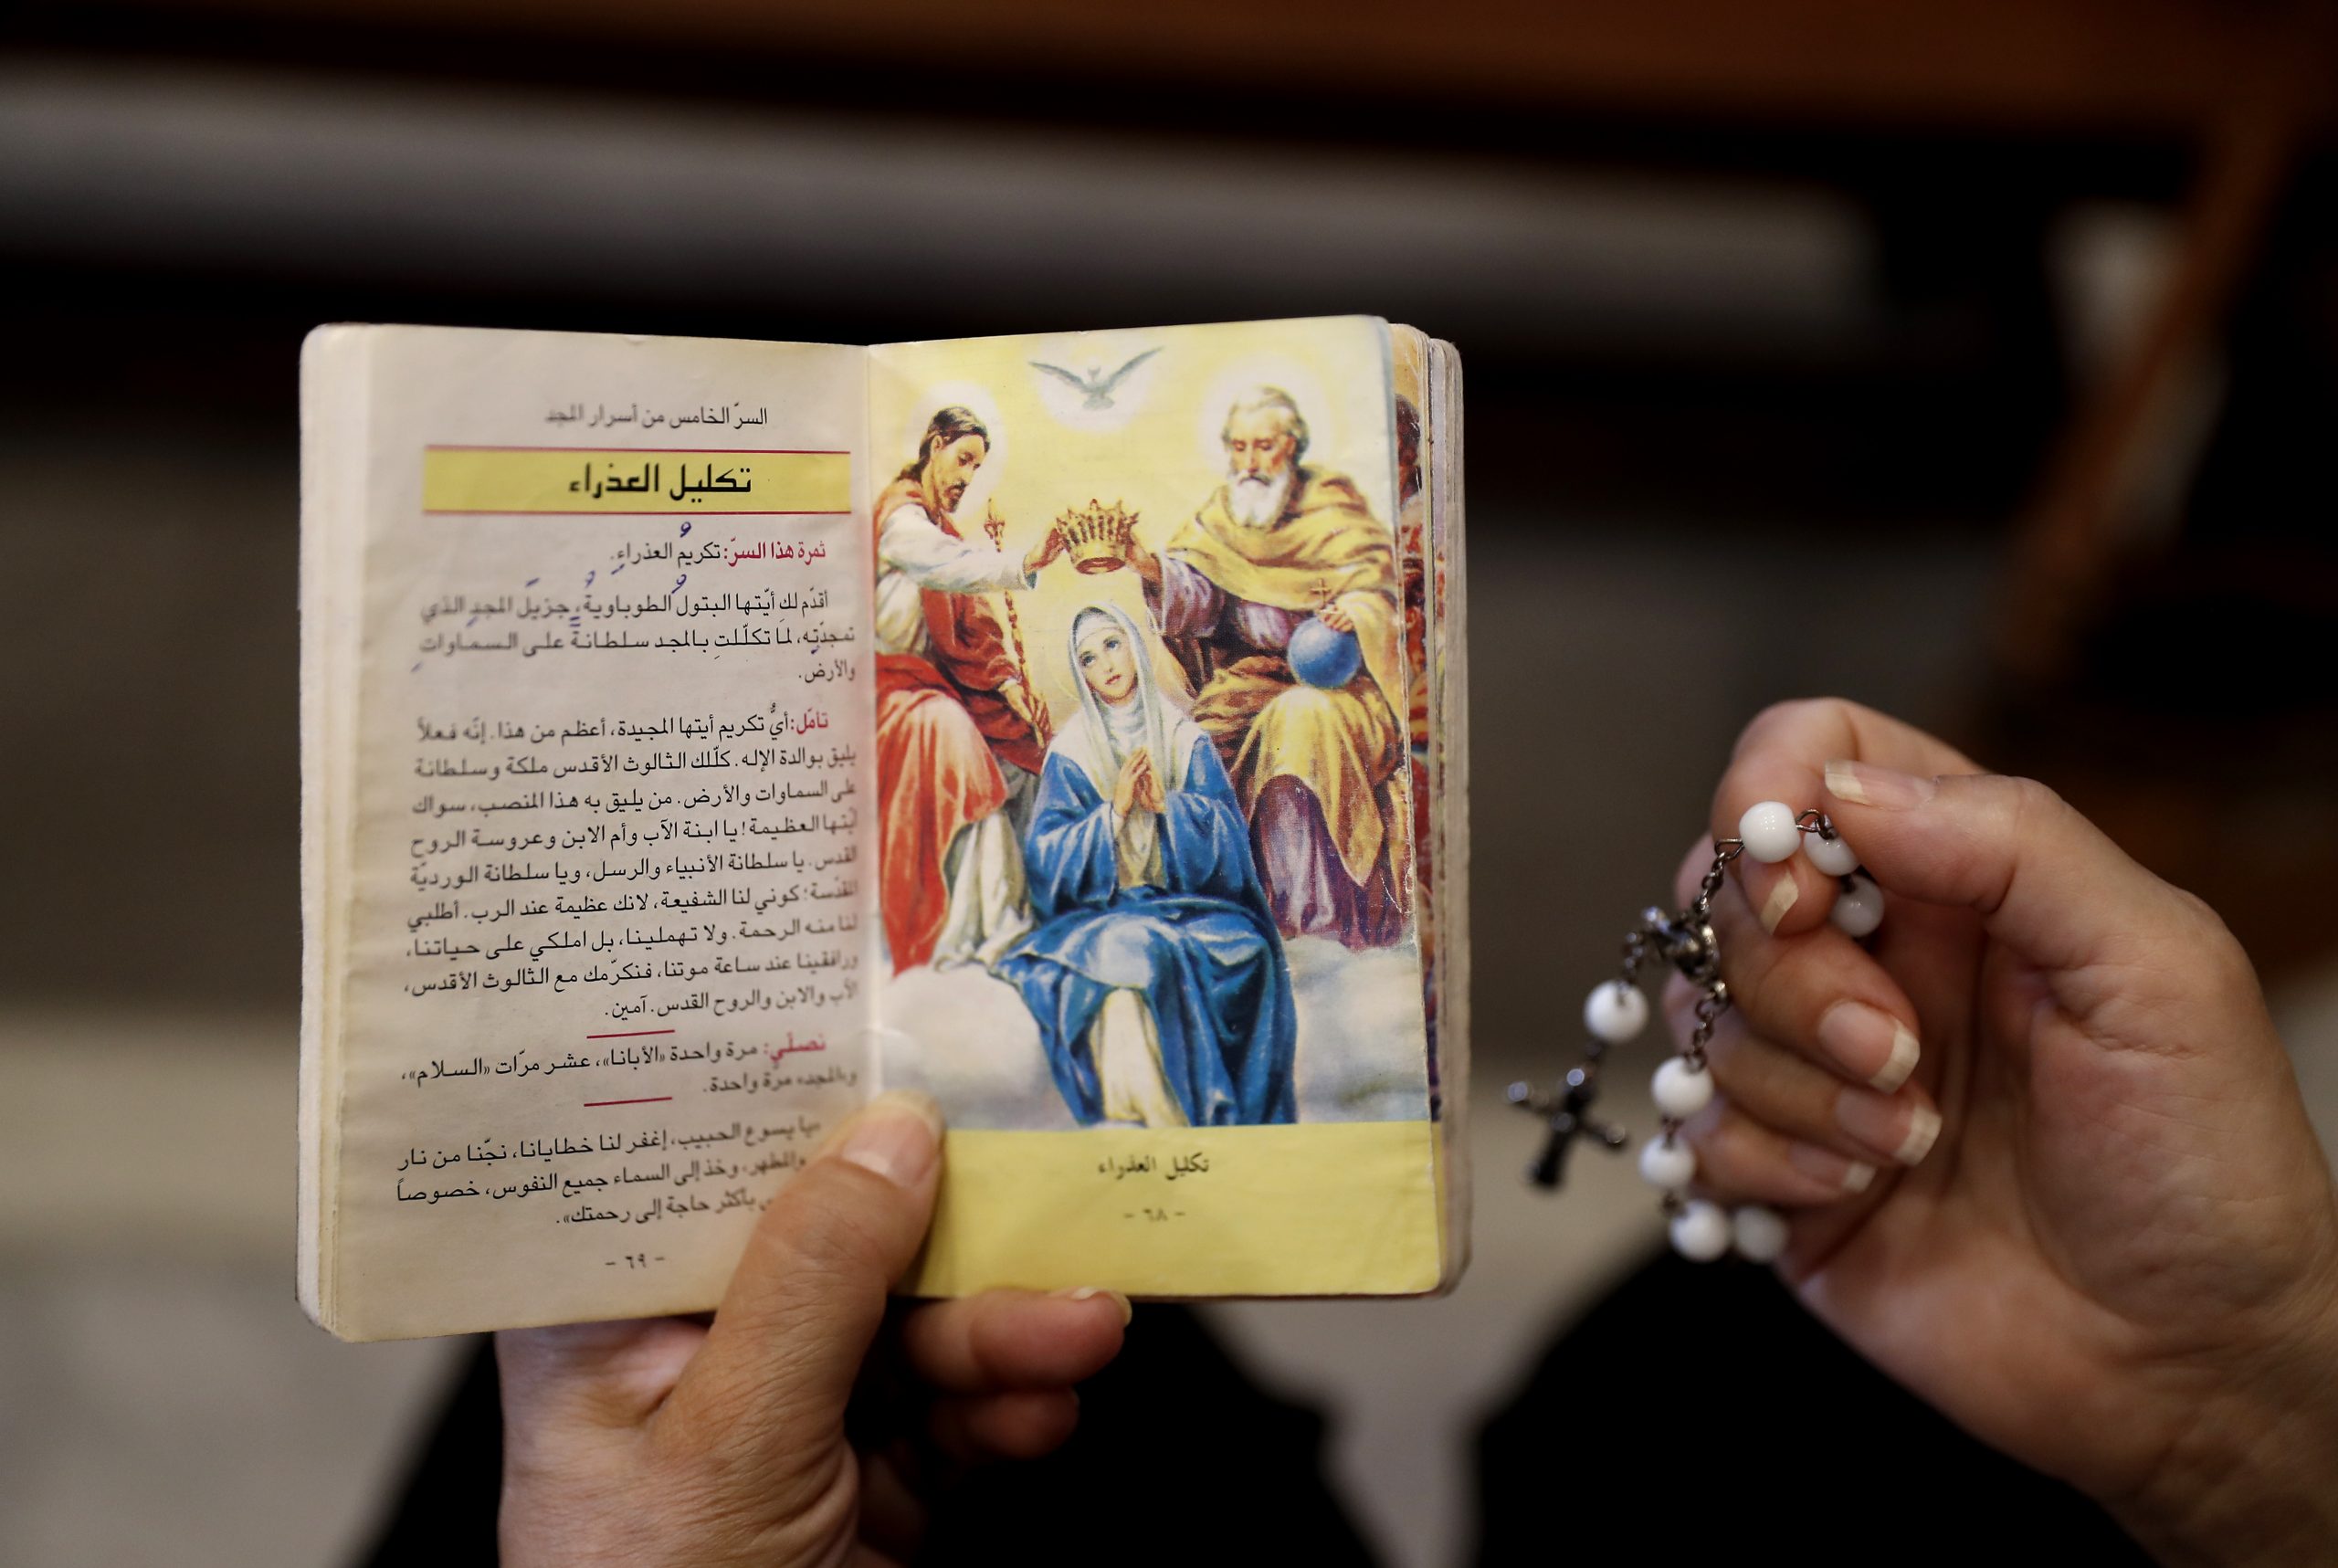 تكليل العذراء
- ٦٨ -
السرّ الخامس من أسرار المجد
تكليل العذراء
ثمرة هذا السرّ: تكريمُ العذراءِ.
أقدّم لكِ أيّتها البتولُ الطوباويةُ، جزيلَ المجدِ الذي
تمجدّتِه، لمّا تكلّلتِ بالمجد سلطانةً على السماواتِ
والأرض.
تأمّل: أيُّ تكريم أيتها المجيدة، أعظم من هذا. إنّه فعلاً
يليق بوالدة الإله. كلّلك الثالوث الأقدس ملكة وسلطانة
على السماوات والأرض. من يليق به هذا المنصب، سواك
أيتها العظيمة! يا ابنة الآب وأم الابن وعروسة الروح
القدس. يا سلطانة الأنبياء والرسل، ويا سلطانة الورديّة
المقدّسة؛ كوني لنا الشفيعة، لانك عظيمة عند الرب. أطلبي
لنا منه الرحمة. ولا تهملينا، بل املكي على حياتنا،
ورافقينا عند ساعة موتنا، فنكرّمك مع الثالوث الأقدس،
الآب والابن والروح القدس. آمين.
نصلّي: مرة واحدة «الأبانا»، عشر مرّات «السلام»،
وبالمجد» مرّة واحدة.
«يا يسوع الحبيب، إغفر لنا خطايانا، نجّنا من نار
والمطهر، وخذ إلى السماء جميع النفوس، خصوصاً
بأكثر حاجة إلى رحمتك».
- ٦٩ -